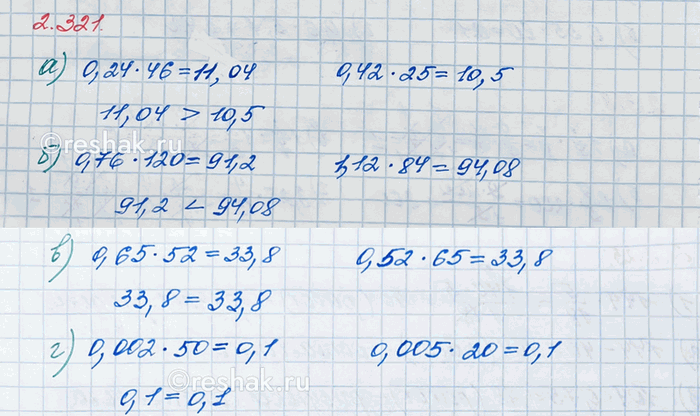 2.321.
а) 0,24·46=11,04 0,42·25=10,5
11,04 > 10,5
©reshak.ru
б) 0,76·120=91,2 1,12·84=94,08
91,2 < 94,08
в) 0,65·52=33,8 0,52·65=33,8
33,8=33,8
г) 0,002·50=0,1 0,005·20=0,1
©reshak.ru
0,1=0,1